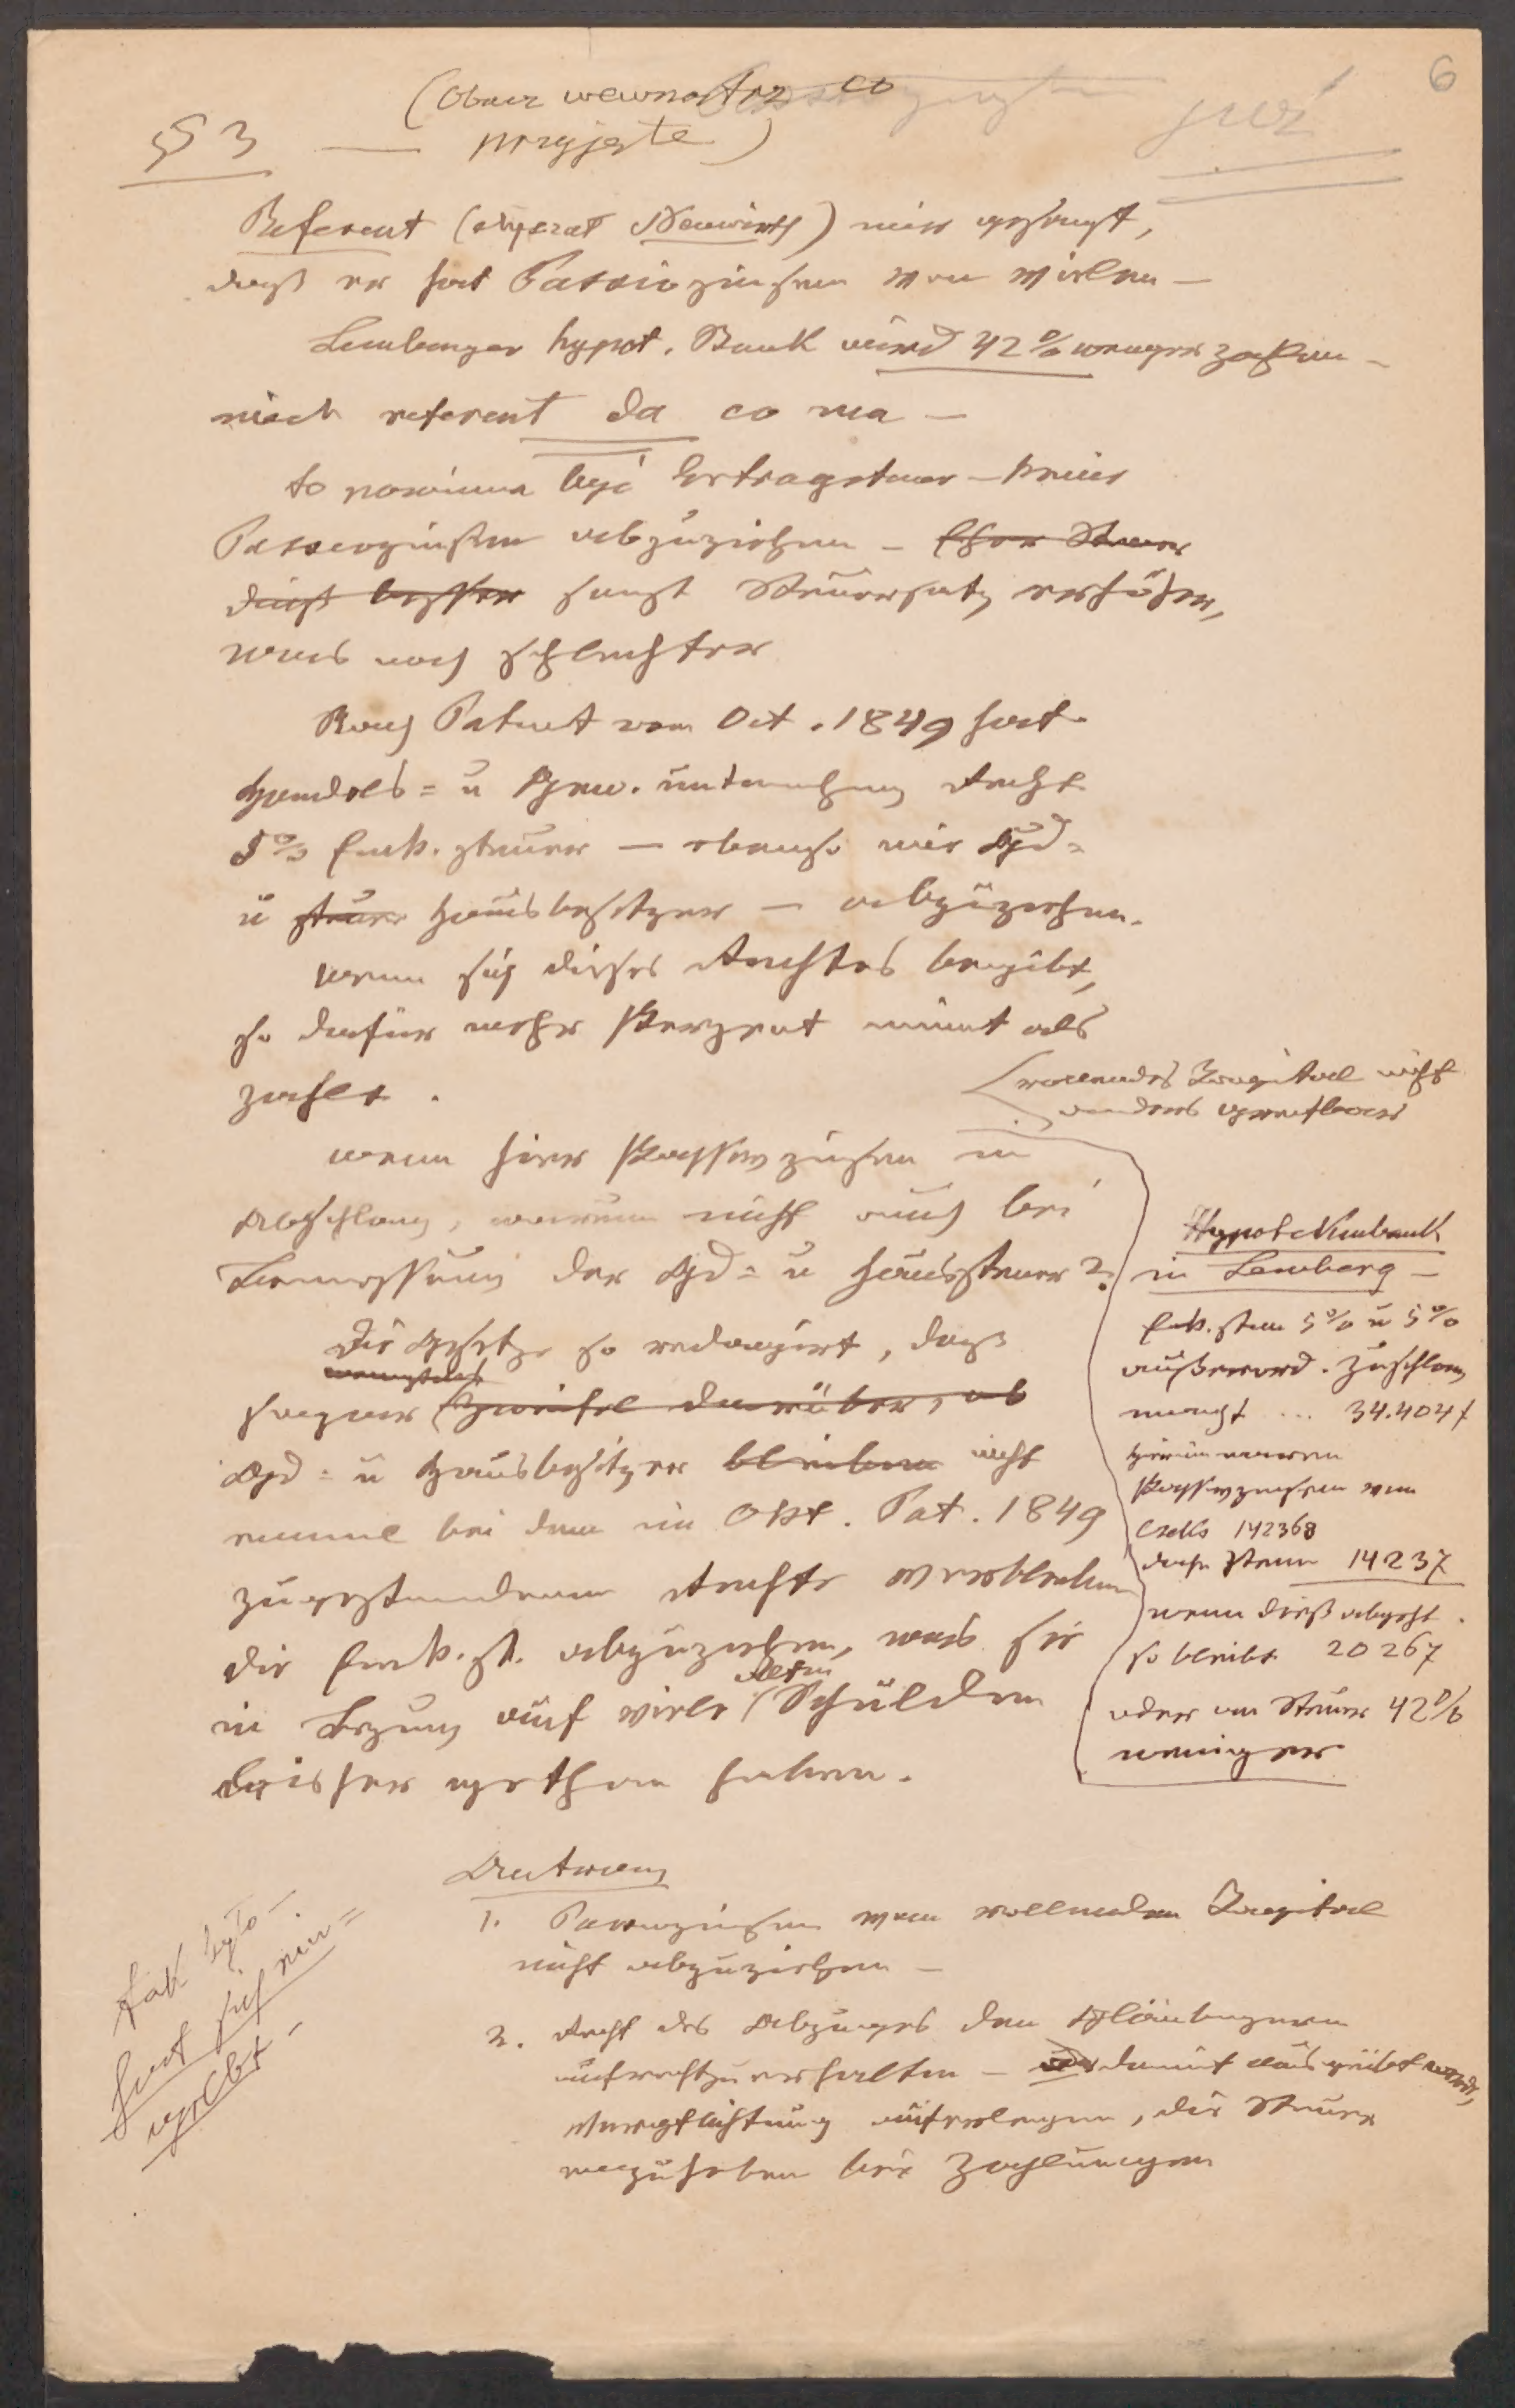 6
(obacz wewnątrz co
już
§ 3 — przyjęte)
Referent (excerat Neuwirth) mir gesagt,
daß er hat Passivzinsen von vielen —
Lemberger hypot. Bank wird 42% weniger zahlen —
niech referent da co ma —
to powinna być Ertragsteuer — keine
Passivzinsen abzuziehen — eher Steuer
dieß besser sonst Steuersatz erhöhen,
was noch schlechter
Nach Patent vom Oct. 1849 hat
Handels= u Gew. unternehmung Recht
5% Eink. steuer — ebenso wie Gd=
u steuer Hausbesitzer — abzuziehen.
wenn sich dieses Rechtes begibt,
so dafür mehr Perzent nimmt als
zahlt.
rollendes Kapital nicht
anders greifbar
wenn hier Passivzinsen in
Abschlag, warum nicht auch bei
Bemessung der Gd= u Haussteuer?
Die Gesetze so redagirt, daß
sogar Zweifel darüber, ob
Gd= u Hausbesitzer bleiben nicht
einmal bei dem im Okt. Pat. 1849
zugestandenen Rechte verbleiben
die Eink. st. abzuziehen, was sie
in Bezug auf viele alten Schulden
bisher gethan haben.
Hypothekenbank
in Lemberg —
Eink. steuer 5% u 5%
außerord. Zuschlag
macht ... 34.404 f
hierin waren
Passivzinsen von
142368
daher Steuer 14237
wenn dieß abgeht
so bleibt 20267
oder an Steuer 42%
weniger
Antrag
1. Passivzinsen vom rollenden Kapital
nicht abzuziehen —
2. Recht des Abzuges den Gläubigern
aufrechtzuerhalten — damit ausgeübt werde,
Verpflichtung auferlegen, die Steuer
einzuheben bei Zahlungen
tak było —
hat sich ein=
gelebt —